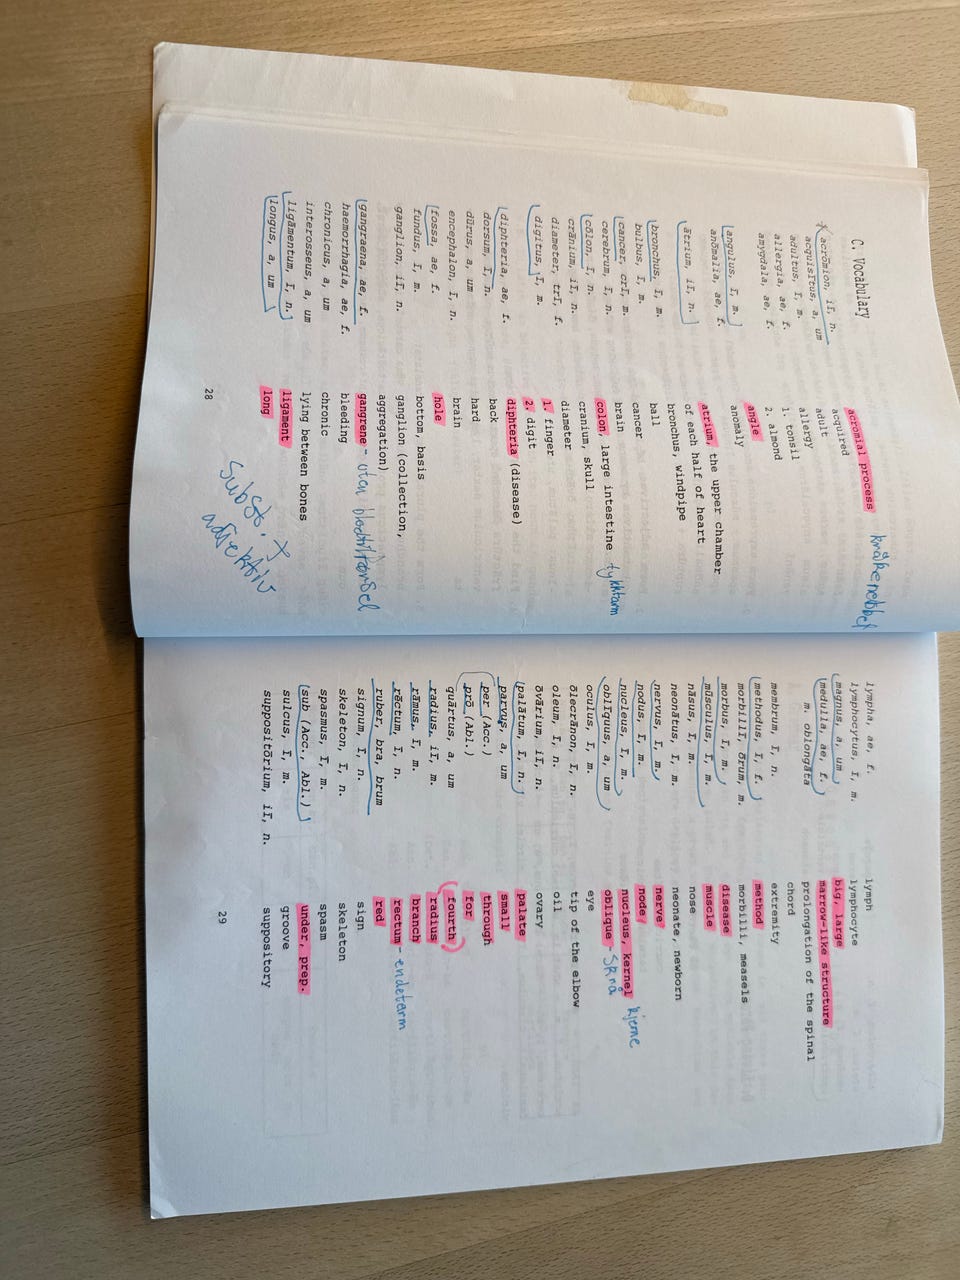 C. Vocabulary
acrōmion, iī, n. acromial process kråkenebbet
acquīsītus, a, um acquired
adultus, ī, m. adult
allergia, ae, f. allergy
amygdala, ae, f. 1. tonsil
2. almond
angulus, ī, m. angle
anōmalia, ae, f. anomaly
ātrium, iī, n. atrium, the upper chamber
of each half of heart
bronchus, ī, m. bronchus, windpipe
bulbus, ī, m. ball
cancer, crī, m. cancer
cerebrum, ī, n. brain
cōlon, ī, n. colon, large intestine tykktarm
crānium, iī, n. cranium, skull
diameter, trī, f. diameter
digitus, ī, m. 1. finger
2. digit
diphteria, ae, f. diphteria (disease)
dorsum, ī, n. back
dūrus, a, um hard
encephalon, ī, n. brain
fossa, ae, f. hole
fundus, ī, m. bottom, basis
ganglion, iī, n. ganglion (collection,
aggregation)
gangraena, ae, f. gangrene - uten blodtilførsel
haemorrhagia, ae, f. bleeding
chronicus, a, um chronic
interosseus, a, um lying between bones
ligāmentum, ī, n. ligament
longus, a, um long
subst. +
adjektiv
28
lympha, ae, f. lymph
lymphocytus, ī, m. lymphocyte
magnus, a, um big, large
medulla, ae, f. marrow-like structure
m. oblongāta prolongation of the spinal
chord
membrum, ī, n. extremity
methodus, ī, f. method
morbillī, ōrum, m. morbilli, measels
morbus, ī, m. disease
mūsculus, ī, m. muscle
nāsus, ī, m. nose
neonātus, ī, m. neonate, newborn
nervus, ī, m. nerve
nodus, ī, m. node
nucleus, ī, m. nucleus, kernel kjerne
oblīquus, a, um oblique - skrå
oculus, ī, m. eye
ōlecrānon, ī, n. tip of the elbow
oleum, ī, n. oil
ōvārium, iī, n. ovary
palātum, ī, n. palate
parvus, a, um small
per (Acc.) through
prō (Abl.) for
quārtus, a, um fourth
radius, iī, m. radius
rāmus, ī, m. branch
rēctum, ī, n. rectum - endetarm
ruber, bra, brum red
signum, ī, n. sign
skeleton, ī, n. skeleton
spasmus, ī, m. spasm
sub (Acc., Abl.) under, prep.
sulcus, ī, m. groove
suppositōrium, iī, n. suppository
29